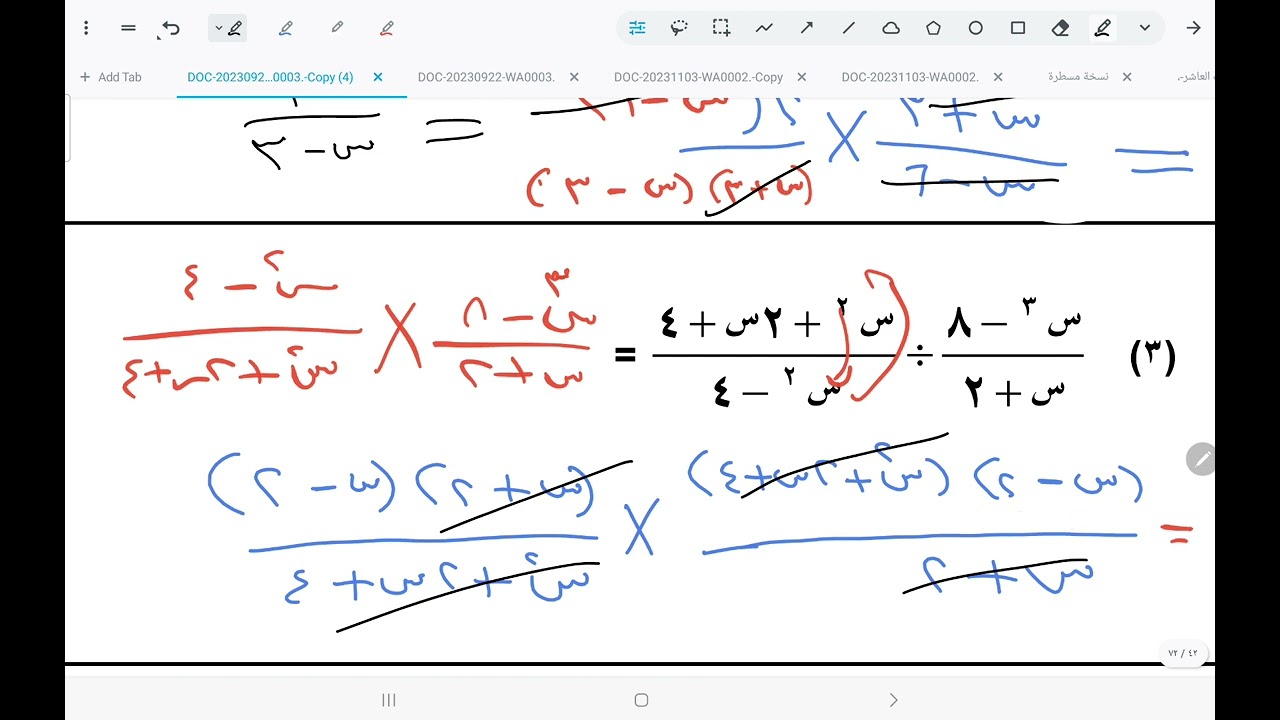 Add Tab
DOC-2023092...0003.-Copy (4)
DOC-20230922-WA0003.
DOC-20231103-WA0002.-Copy
DOC-20231103-WA0002.
نسخة مسطرة
العاشر-.
= (س + ٣) / (س - ٦) × / (س + ٣) (س - ٣) = / (س - ٣)
(٣) (س³ - ٨) / (س + ٢) ÷ (س² + ٢س + ٤) / (س² - ٤) = (س³ - ٨) / (س + ٢) × (س² - ٤) / (س² + ٢س + ٤)
= (س - ٢) (س² + ٢س + ٤) / (س + ٢) × (س + ٢) (س - ٢) / (س² + ٢س + ٤)
٤٢ / ٧٢